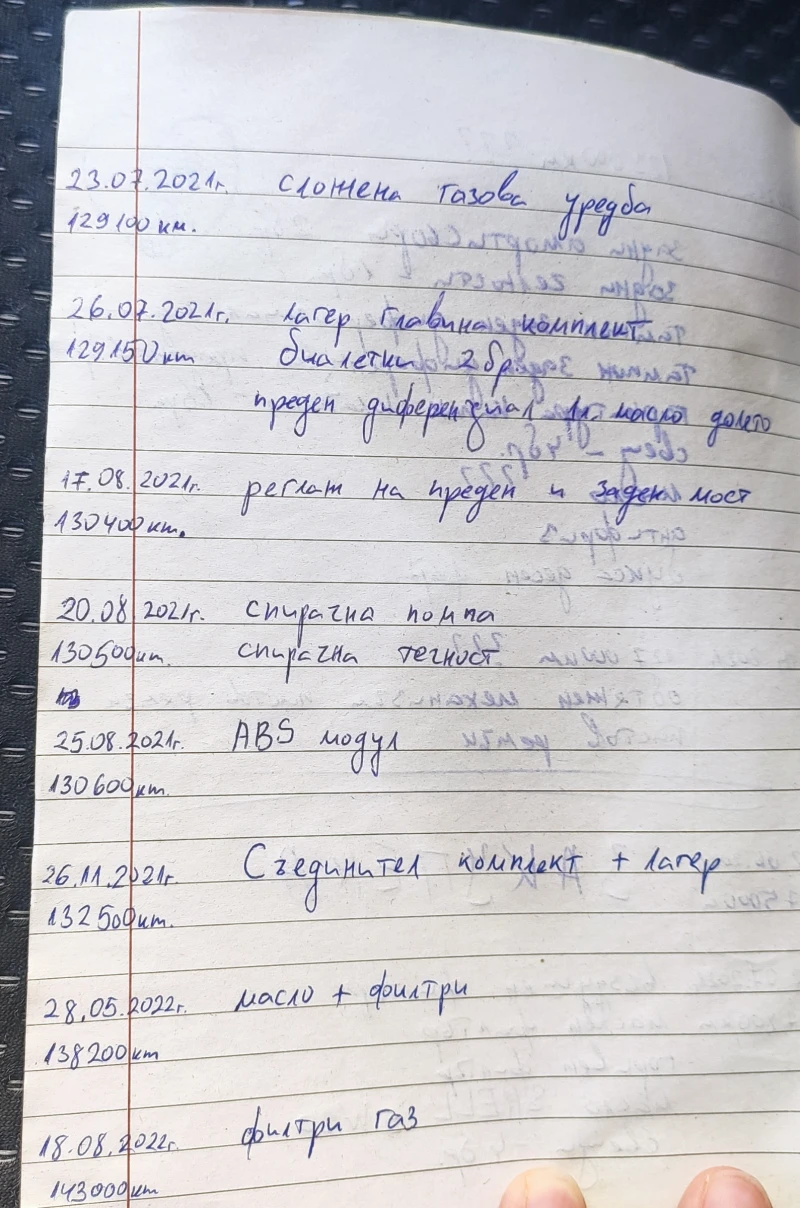 23.07.2021г. сложена газова уредба
129100км.
26.07.2021г. лагер главина комплект
129150км биалетки 2бр.
преден диференциал 1л. масло долото
17.08.2021г. реглаж на преден и заден мост
130400км.
20.08 2021г. спирачна помпа
130500км. спирачна течност
25.08.2021г. ABS модул
130600км.
26.11.2021г. Съединител комплект + лагер
132500км.
28.05.2022г. масло + филтри
138200км
18.08.2022г. филтри газ
143000км